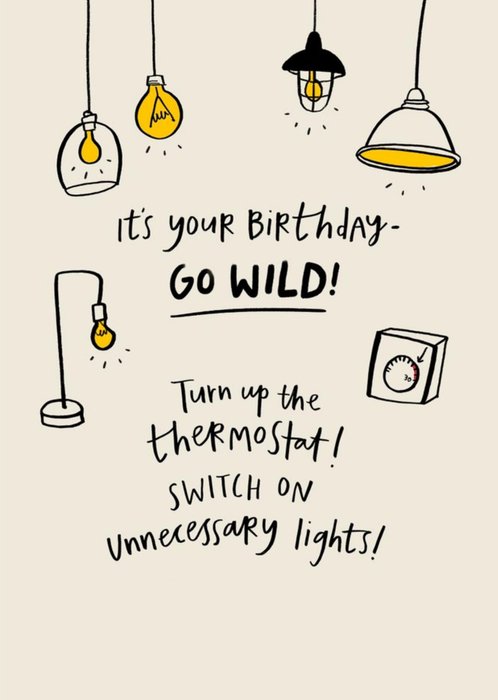 It's your Birthday-
GO WILD!
30
Turn up the
thermostat!
SWITCH ON
unnecessary lights!